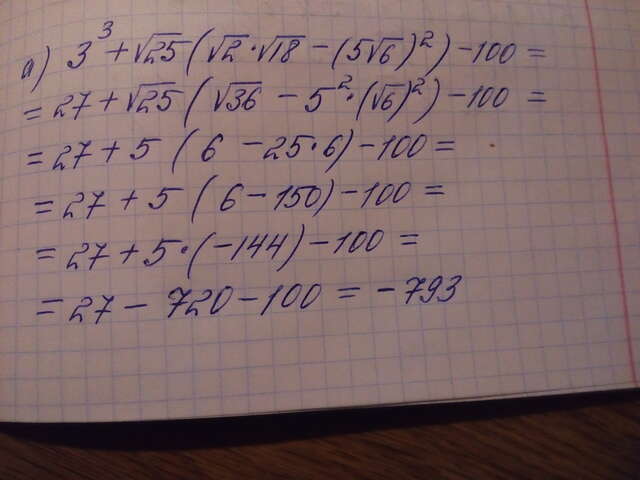 а) 3³ + √25 (√2 · √18 − (5√6)²) − 100 =
= 27 + √25 (√36 − 5² · (√6)²) − 100 =
= 27 + 5 (6 − 25 · 6) − 100 =
= 27 + 5 (6 − 150) − 100 =
= 27 + 5 · (−144) − 100 =
= 27 − 720 − 100 = −793